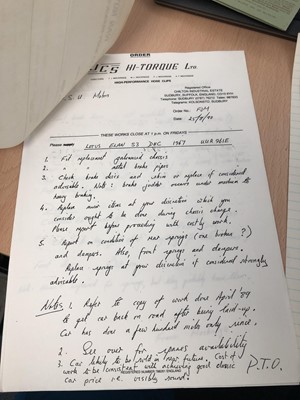 ORDER
DCS HI-TORQUE LTD.
HIGH-PERFORMANCE HIGH LIFE
Registered Office
CHILTON INDUSTRIAL ESTATE
SUDBURY, SUFFOLK, ENGLAND
Order No.
Date 25/
S.U. Midas
THESE WORKS CLOSE AT 1 p.m. ON FRIDAYS
Please LOTUS ELAN S3 DEC 1967 UUA 961E
1. Fit replacement galvanised chassis
2. " " metal brake pipes
3. Check brake discs and skim or replace if considered
advisable. Note: brake judder occurs under medium to
heavy braking.
4. Replace minor items at your discretion which you
consider ought to be done during chassis change.
Please report before proceeding with costly work.
5. Report on condition of rear springs (one broken?)
and dampers. Also, front springs and dampers.
Replace springs at your discretion if considered strongly
advisable.
Notes: 1. Refer to copy of work done April '99
to get car back on road after being laid-up.
Car has done a few hundred miles only since.
2. See over for spares availability
3. Car likely to be sold in near future. Cost of
work to be consistent with achieving good classic
car price i.e. visibly sound.
P.T.O.